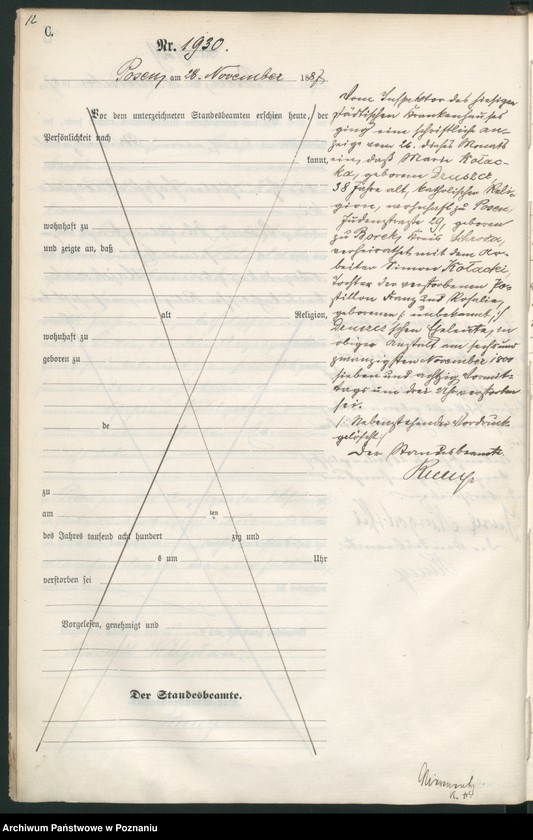 12
C.
Nr. 1930.
Posen, am 28. November 1887
Vor dem unterzeichneten Standesbeamten erschien heute, der
Persönlichkeit nach
kannt,
wohnhaft zu
und zeigte an, daß
alt Religion,
wohnhaft zu
geboren zu
de
zu
am ten
des Jahres tausend acht hundert zig und
s um Uhr
verstorben sei
Vorgelesen, genehmigt und
Der Standesbeamte.
Vom Inspektor des hiesigen
städtischen Krankenhauses
ging eine schriftliche An-
zeige vom 26. dieses Monats
ein, daß Marie Kołac-
ka, geborene Deuszcz,
38 Jahre alt, katholischer Reli-
gion, wohnhaft zu Posen,
Judenstraße 29, geboren
zu Borek, Kreis Schroda,
verheirathet mit dem Ar-
beiter Simon Kołacki,
Tochter der verstorbenen Po-
stillon Franz und Rosalie,
geborenen /: unbekannt :/
schen Eheleute, in
obiger Anstalt am sechs und
zwanzigsten November 1800
sieben und achtzig Vormit-
tags um drei Uhr verstorben
sei.
/: Nebenstehender Vordruck
gelöscht :/
Der Standesbeamte
Archiwum Państwowe w Poznaniu